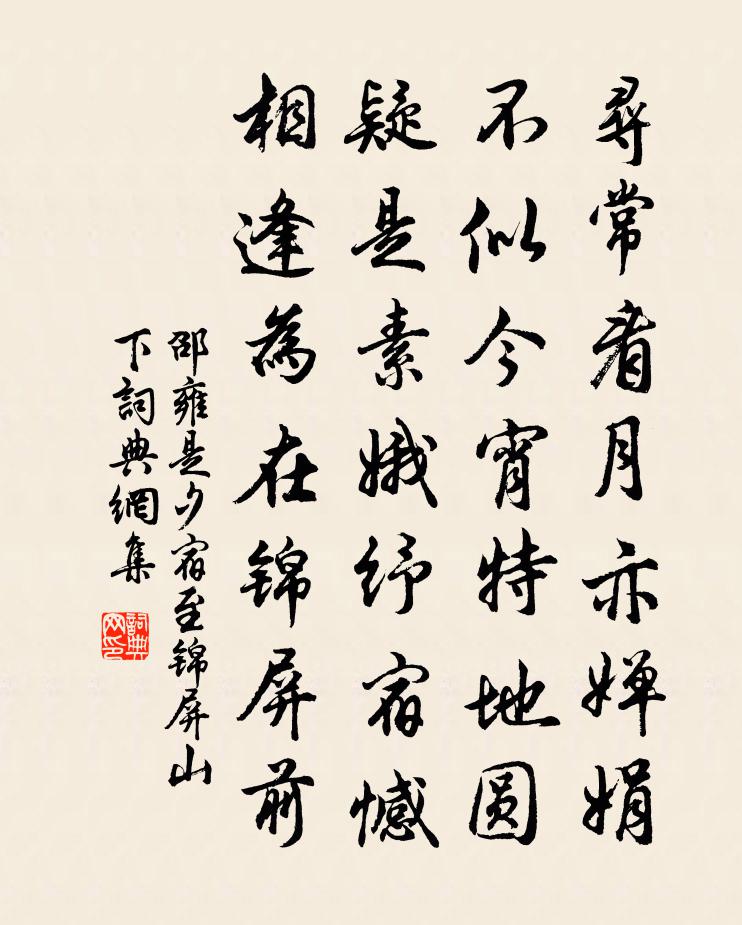 尋常看月亦嬋娟
不似今宵特地圆
疑是素娥紓宿憾
相逢為在锦屏前
邵雍是夕宿至锦屏山
下詞典網集
詞典网印